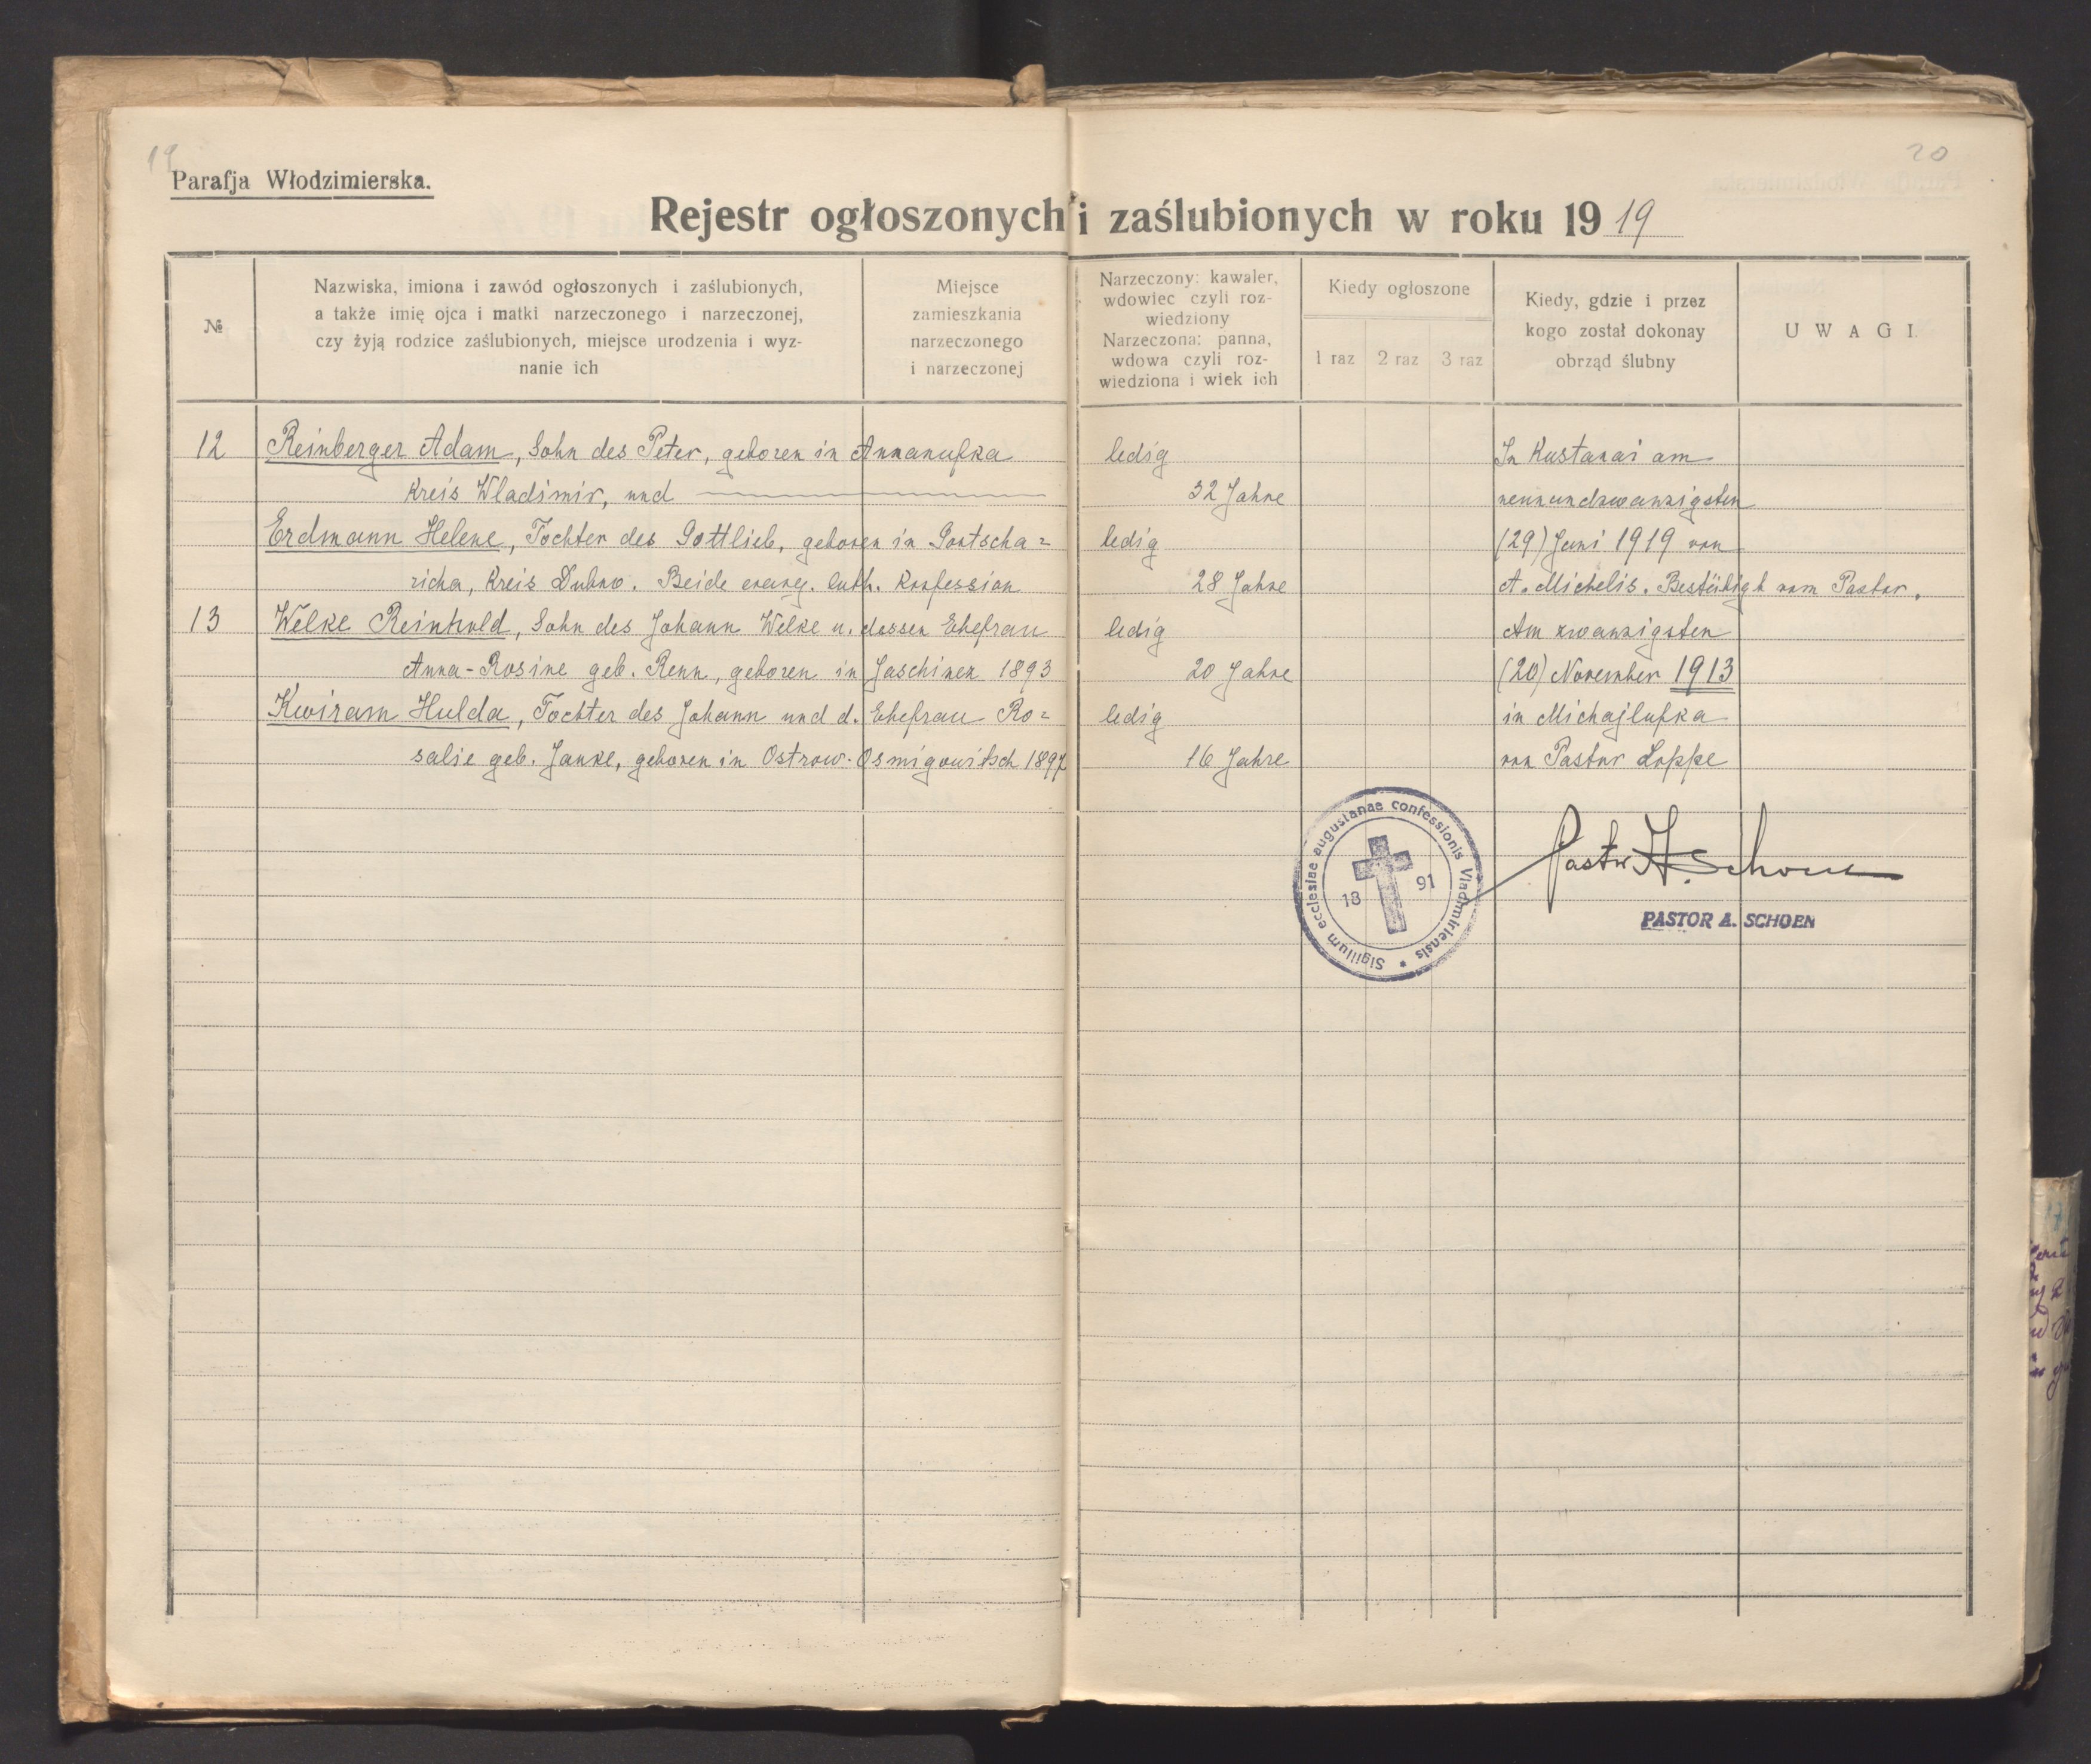 19
20
Parafja Włodzimierska.
Rejestr ogłoszonych i zaślubionych w roku 1919
№
Nazwiska, imiona i zawód ogłoszonych i zaślubionych,
a także imię ojca i matki narzeczonego i narzeczonej,
czy żyją rodzice zaślubionych, miejsce urodzenia i wyz-
nanie ich
Miejsce
zamieszkania
narzeczonego
i narzeczonej
Narzeczony: kawaler,
wdowiec czyli roz-
wiedziony
Narzeczona: panna,
wdowa czyli roz-
wiedziona i wiek ich
Kiedy ogłoszone
1 raz 2 raz 3 raz
Kiedy, gdzie i przez
kogo został dokonay
obrząd ślubny
UWAGI.
12 Reinberger Adam, Sohn des Peter, geboren in Annanufka ledig In Kustanai am
Kreis Wladimir, und 32 Jahre neunundzwanzigsten
Erdmann Helene, Tochter des Gottlieb, geboren in Gontscha= ledig (29) Juni 1919 von
richa, Kreis Dubno. Beide evang. luth. Konfession 28 Jahre A. Michelis. Bestätigt vom Pastor.
13 Welke Reinhold, Sohn des Johann Welke u. dessen Ehefrau ledig Am zwanzigsten
Anna-Rosine geb. Renn, geboren in Jaschinen 1893 20 Jahre (20) November 1913
Kwiram Hulda, Tochter des Johann und d. Ehefrau Ro= ledig in Michajlufka
salie geb. Janke, geboren in Ostrow-Osmigowitsch 1897 16 Jahre von Pastor Loppe
Sigillum ecclesiae augustanae confessionis Vladimiriensis *
18 91
Pastor A. Schoen
PASTOR A. SCHOEN